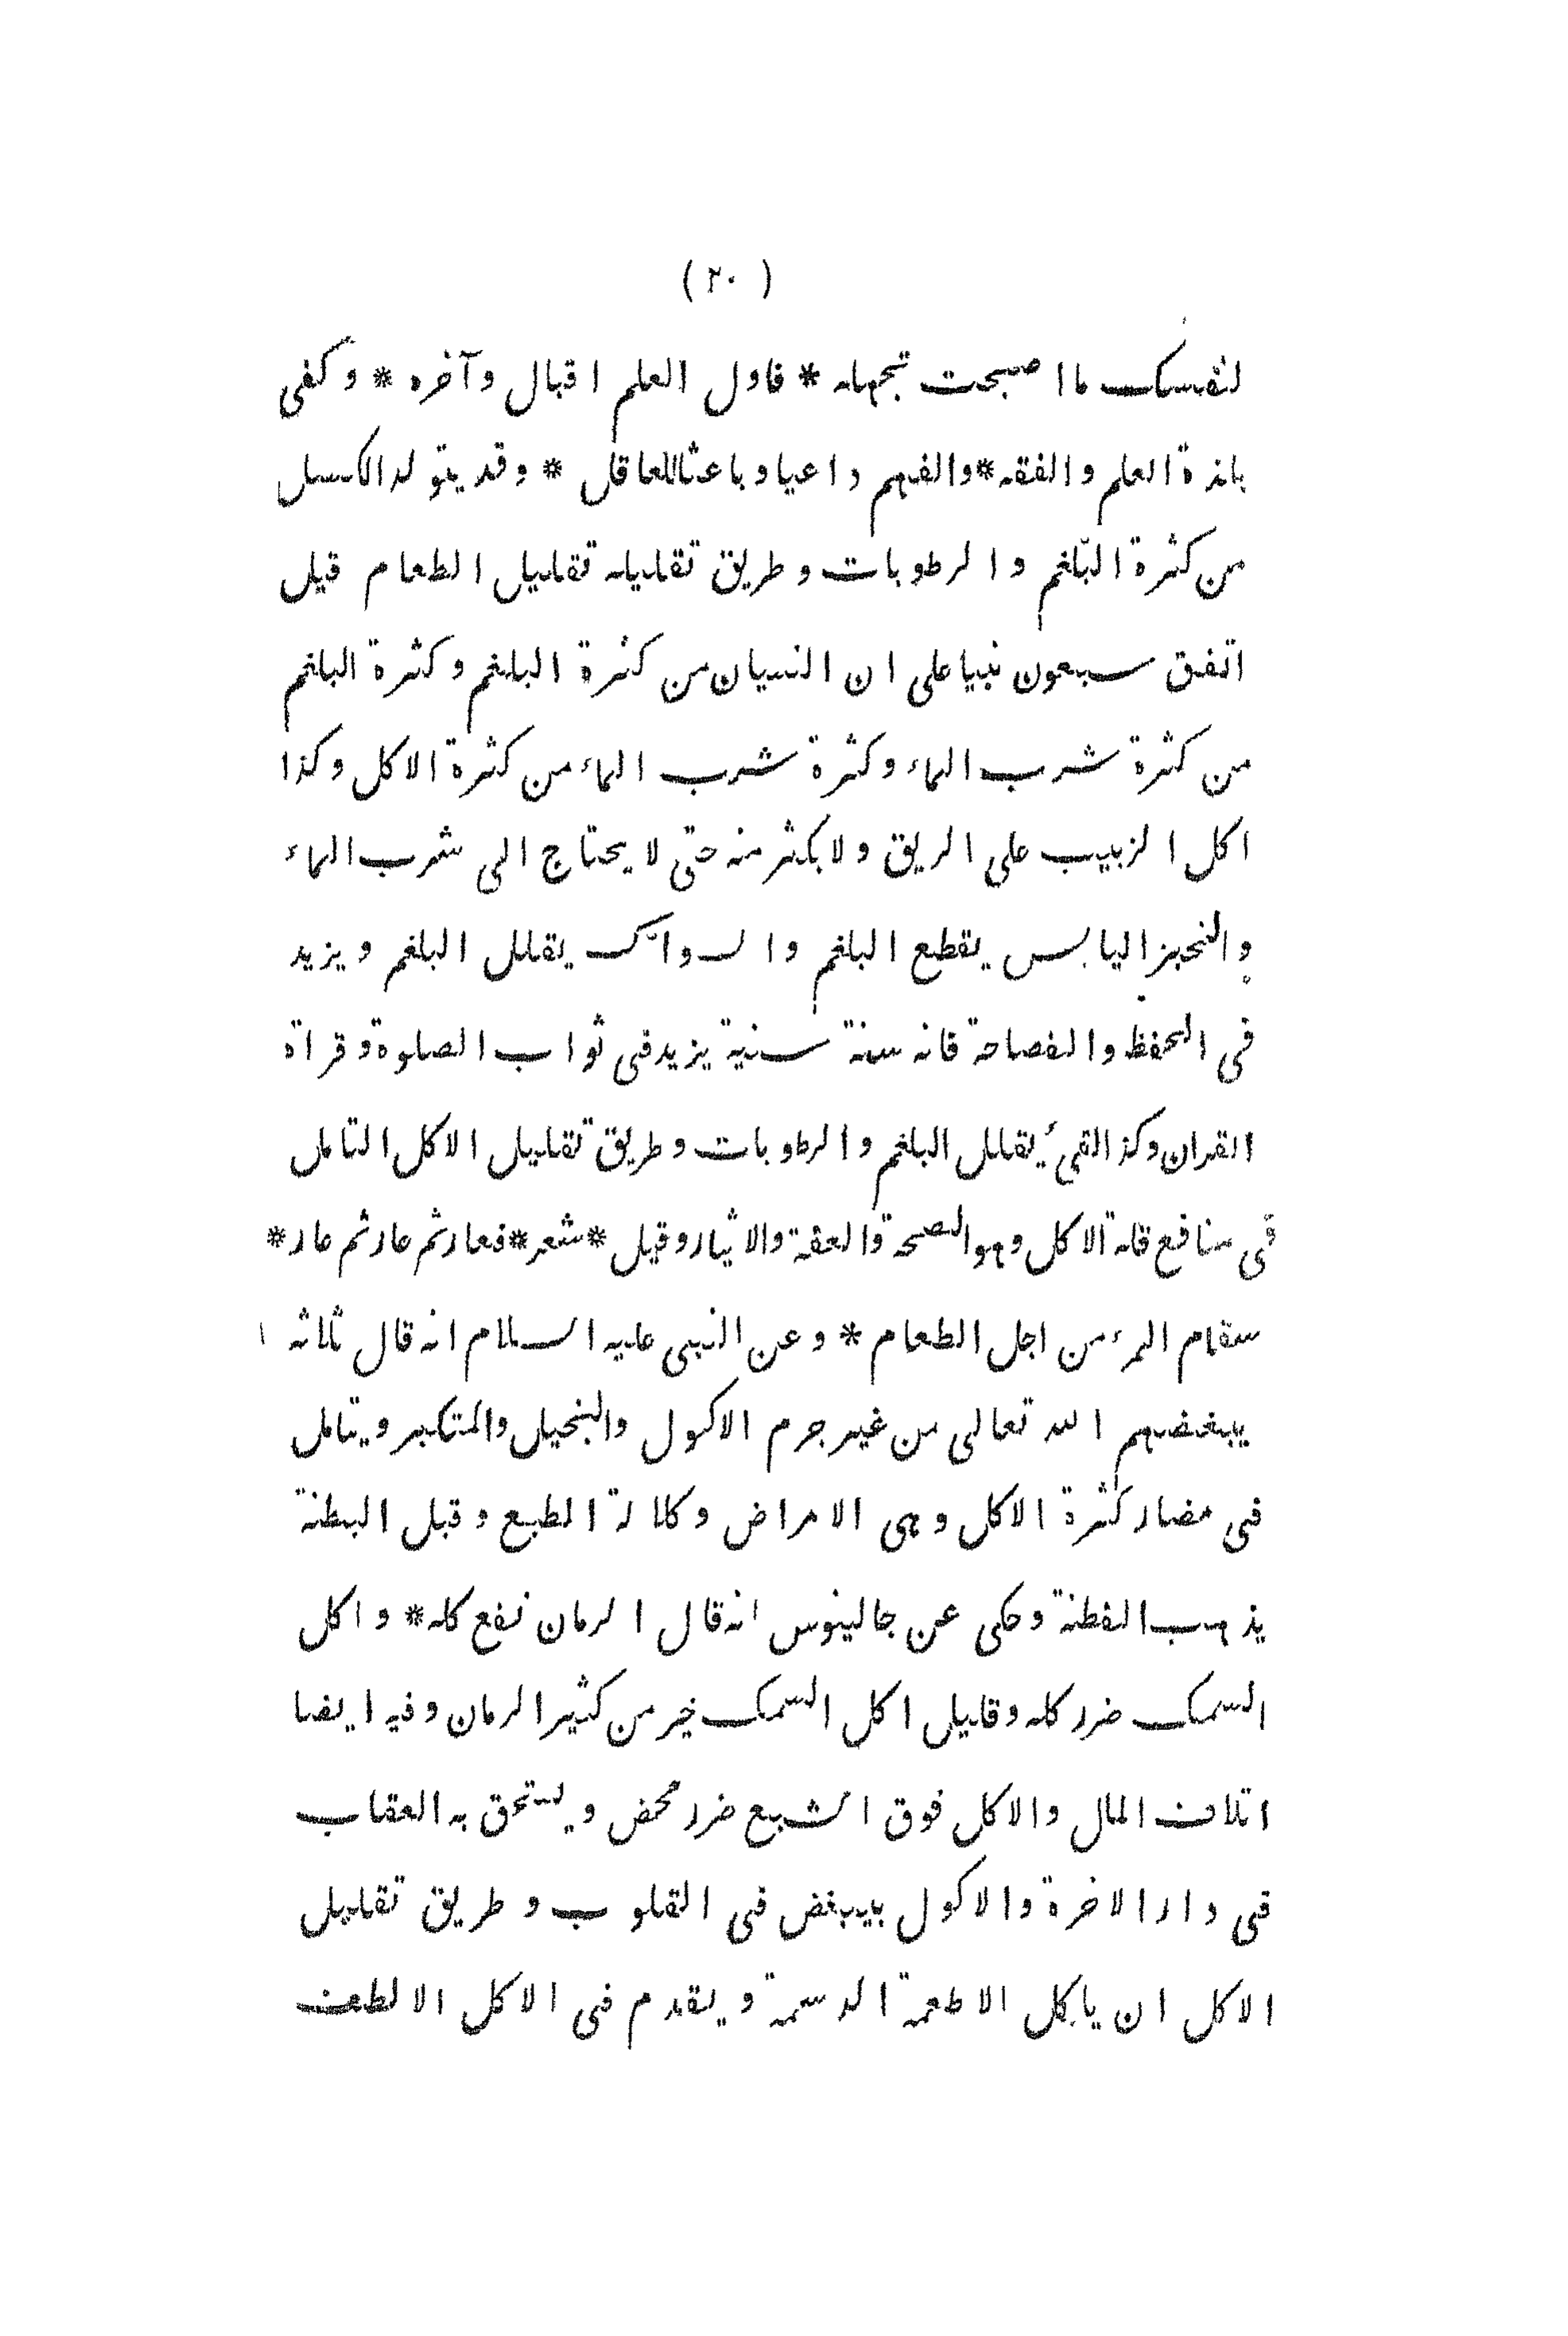 ( ٢٠ )
لنفسك ما اصبحت تجهله * فاول العلم اقبال وآخره * وكفى
بلذة العلم والفقه * والفهم داعيا وباعثا للعاقل * وقد يتولد الكسل
من كثرة البلغم والرطوبات وطريق تقليله تقليل الطعام قيل
اتفق سبعون نبيا على ان النسيان من كثرة البلغم وكثرة البلغم
من كثرة شرب الماء وكثرة شرب الماء من كثرة الاكل وكذا
اكل الزبيب على الريق ولا يكثر منه حتى لا يحتاج الى شرب الماء
والخبز اليابس يقطع البلغم والسواك يقلل البلغم ويزيد
فى الحفظ والفصاحة فانه سنة سنية يزيد فى ثواب الصلوة وقراة
القران وكذا القئ يقلل البلغم والرطوبات وطريق تقليل الاكل التامل
فى منافع قلة الاكل وهو الصحة والعفة والايثار وقيل * شعر * فعار ثم عار ثم عار *
سقام المرء من اجل الطعام * وعن النبى عليه السلام انه قال ثلاثه
يبغضهم الله تعالى من غير جرم الاكول والبخيل والمتكبر ويتامل
فى مضار كثرة الاكل وهى الامراض وكلالة الطبع وقيل البطنة
يذهب الفطنة وحكى عن جالينوس انه قال الرمان نفع كله * واكل
السمك ضرر كله وقليل اكل السمك خير من كثير الرمان وفيه ايضا
اتلاف المال والاكل فوق الشبع ضرر محض ويستحق به العقاب
فى دار الاخرة والاكول بيبغض فى القلوب وطريق تقليل
الاكل ان ياكل الاطعمة الدسمة ويقدم فى الاكل الالطف